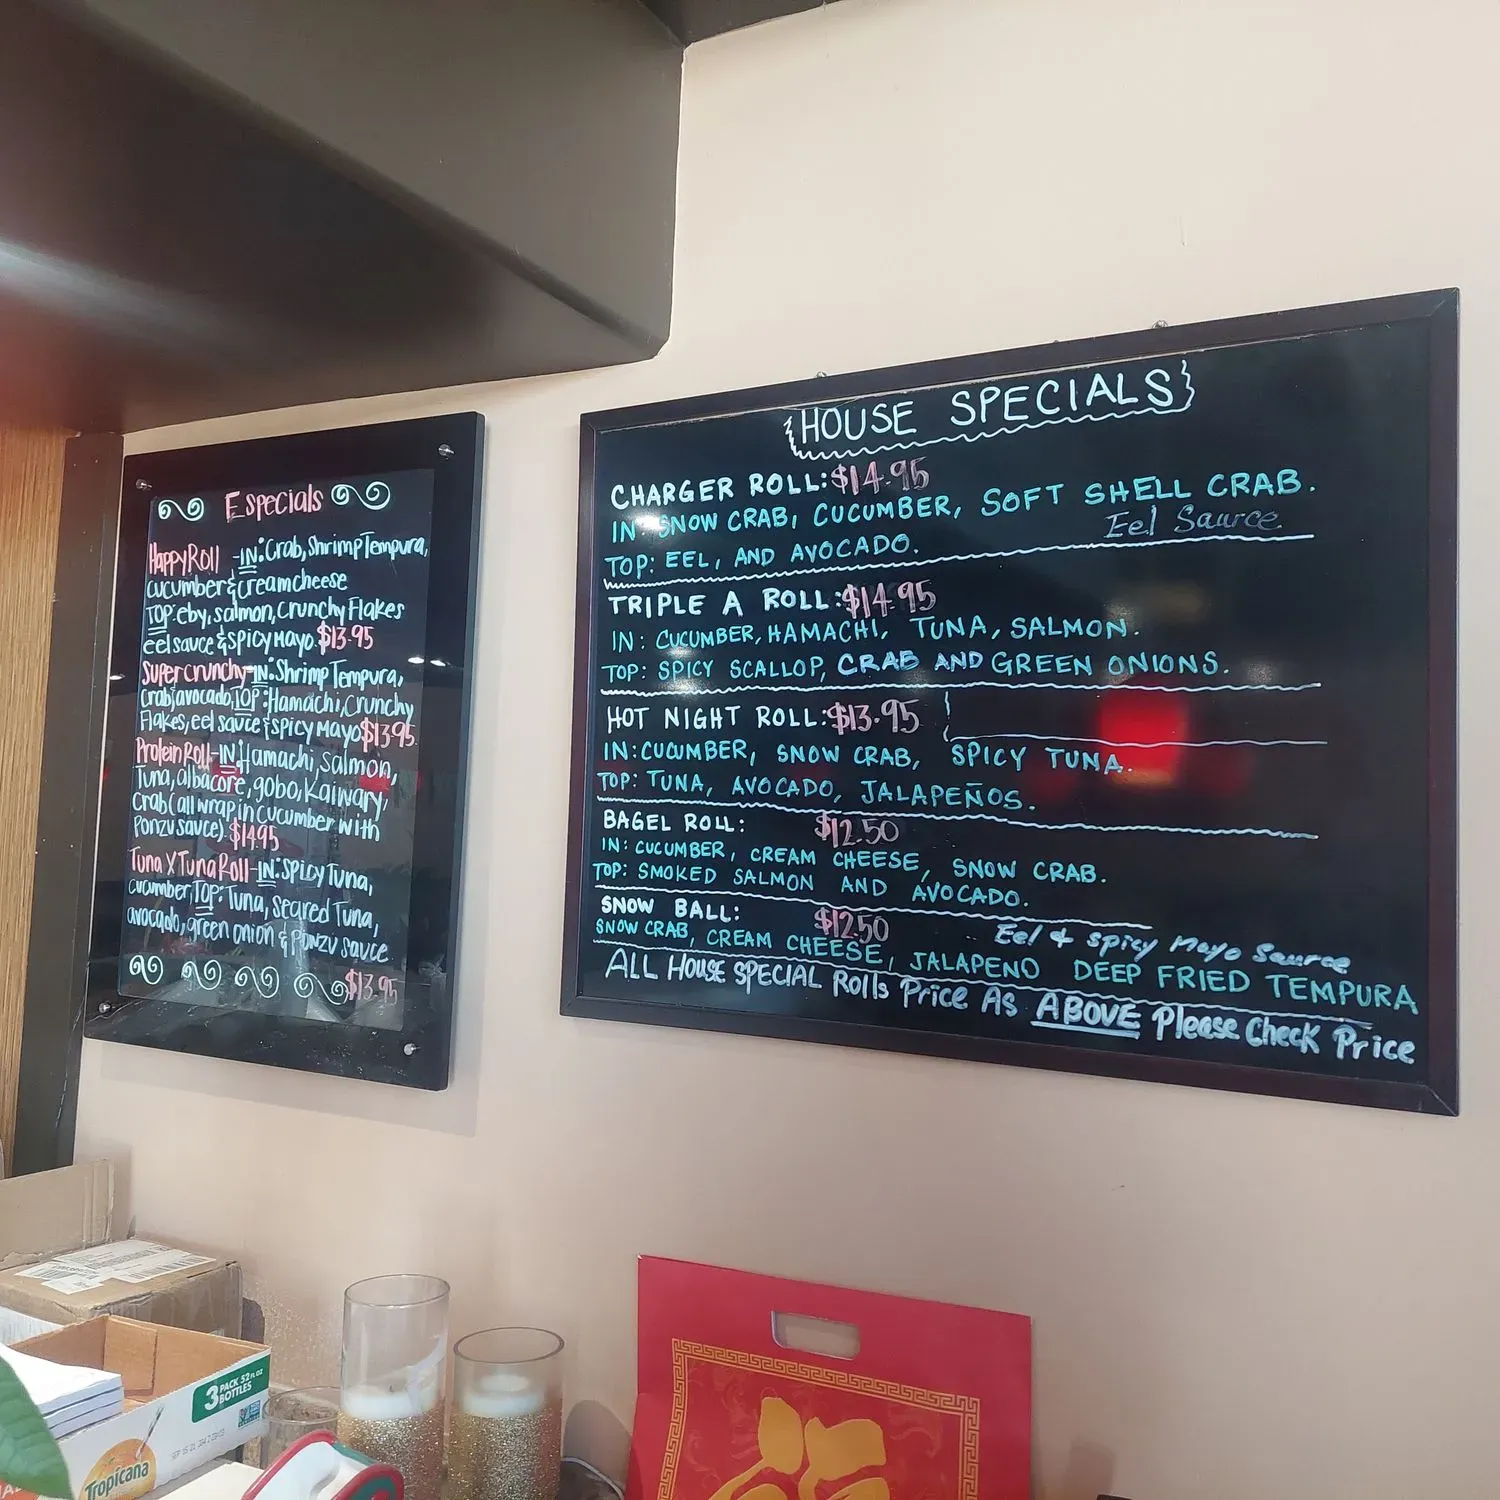 Especials
Happy Roll -IN: Crab, Shrimp Tempura,
cucumber & creamcheese
TOP: eby, salmon, crunchy Flakes
eel sauce & spicy Mayo. $13.95
Super crunchy-IN: Shrimp Tempura,
crab, avocado, TOP: Hamachi, Crunchy
Flakes, eel sauce & spicy Mayo $13.95
Protein Roll-IN: Hamachi, salmon,
Tuna, albacore, gobo, Kaiwary,
Crab (all wrap in cucumber with
Ponzu sauce) $14.95
Tuna X Tuna Roll-IN: spicy Tuna,
cucumber, TOP: Tuna, seared Tuna,
avocado, green onion & Ponzu sauce
$13.95
HOUSE SPECIALS
CHARGER ROLL: $14.95
IN: SNOW CRAB, CUCUMBER, SOFT SHELL CRAB.
TOP: EEL, AND AVOCADO. Eel Saurce
TRIPLE A ROLL: $14.95
IN: CUCUMBER, HAMACHI, TUNA, SALMON.
TOP: SPICY SCALLOP, CRAB AND GREEN ONIONS.
HOT NIGHT ROLL: $13.95
IN: CUCUMBER, SNOW CRAB, SPICY TUNA.
TOP: TUNA, AVOCADO, JALAPEÑOS.
BAGEL ROLL: $12.50
IN: CUCUMBER, CREAM CHEESE, SNOW CRAB.
TOP: SMOKED SALMON AND AVOCADO.
SNOW BALL: $12.50 Eel & Spicy Mayo Saurce
SNOW CRAB, CREAM CHEESE, JALAPENO DEEP FRIED TEMPURA
ALL HOUSE SPECIAL Rolls Price As ABOVE Please Check Price
3 PACK 52 FL OZ
BOTTLES
Tropicana